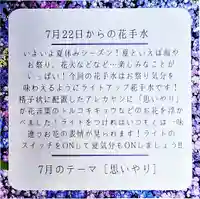 7月22日からの花手水
いよいよ夏休みシーズン！夏といえば海や
お祭り、花火などなど…楽しみなことが
いっぱい！今回の花手水はお祭り気分を
味わえるようにライトアップ花手水です！
格子状に配置したアレカヤシに「思いやり」
が花言葉のトルコキキョウなどのお花を浮か
べました！ライトをつければいつもとは一味
違うお花の表情が見られます！ライトの
スイッチをONして夏気分もONしましょう!!
7月のテーマ［思いやり］